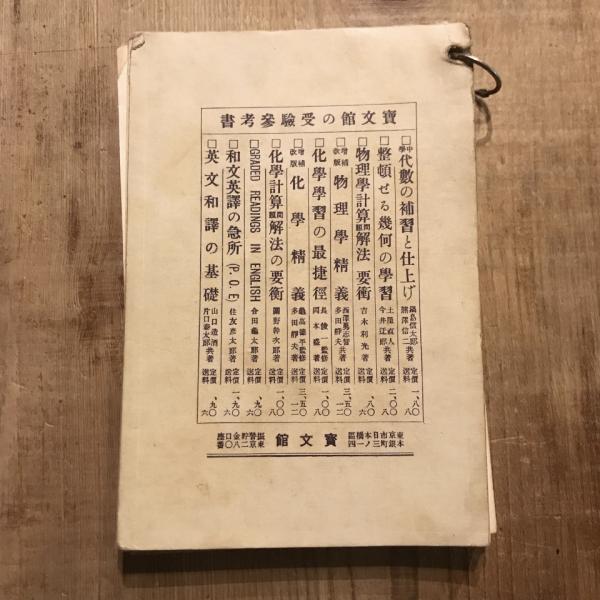 寶文館の受驗參考書
□中學代數の補習と仕上げ 鍋島信太郎 諸澤信二共著 定價一、八〇 送料
□整頓せる幾何の學習 土屋直人 今井辻郎共著 定價二、〇〇 送料八
□物理學計算問題解法の要衝 吉木利光著 定價、八〇 送料六
□增補改版物理學精義 西澤勇志智 多田靜夫共著 定價三、五〇 送料一二
□化學學習の最捷徑 長俊一監修 岡本盛著 定價一、〇〇 送料八
□增補改版化學精義 龜高德平監修 多田靜夫著 定價三、五〇 送料一二
□化學計算問題解法の要衡 園野幹次郎著 定價一、〇〇 送料八
□GRADED READINGS IN ENGLISH 會田龜太郎著 定價、九〇 送料六
□和文英譯の急所(P.O.E) 住友彦太郎著 定價一、九〇 送料
□英文和譯の基礎 山口造酒 片口泰太郎共著 定價、九〇 送料六
東京市日本橋區本銀町三ノ一四
寶文館
振替貯金口座東京二八〇番